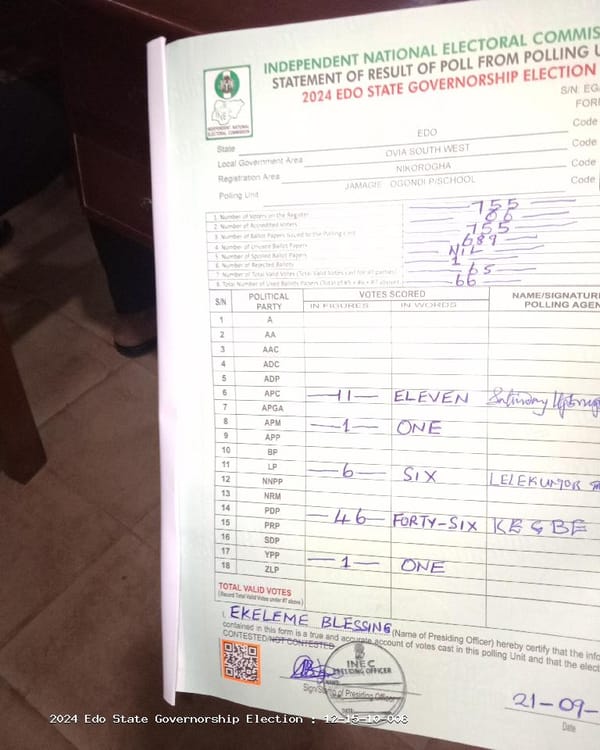 INDEPENDENT NATIONAL ELECTORAL COMMIS
STATEMENT OF RESULT OF POLL FROM POLLING U
2024 EDO STATE GOVERNORSHIP ELECTION
S/N: EG
FOR
INEC
INDEPENDENT NATIONAL
ELECTORAL COMMISSION
State EDO Code
Local Government Area OVIA SOUTH WEST Code
Registration Area NIKOROGHA Code
Polling Unit JAMAGIE OGONDI P/SCHOOL Code
1. Number of Voters on the Register 755
2. Number of Accredited Voters 66
3. Number of Ballot Papers Issued to the Polling Unit 755
4. Number of Unused Ballot Papers 689
5. Number of Spoiled Ballot Papers NIL
6. Number of Rejected Ballots 1
7. Number of Total Valid Votes (Total Valid Votes cast for all parties) 65
8. Total Number of Used Ballot Papers (Total of #5 + #6 + #7 above) 66
S/N POLITICAL PARTY VOTES SCORED NAME/SIGNATUR
IN FIGURES IN WORDS POLLING AGEN
1 A
2 AA
3 AAC
4 ADC
5 ADP
6 APC 11 ELEVEN
7 APGA
8 APM 1 ONE
9 APP
10 BP
11 LP 6 SIX
12 NNPP
13 NRM
14 PDP 46 FORTY-SIX
15 PRP
16 SDP
17 YPP 1 ONE
18 ZLP
TOTAL VALID VOTES
(Record Total Valid Votes under #7 above)
I, EKELEME BLESSING (Name of Presiding Officer) hereby certify that the info
contained in this form is a true and accurate account of votes cast in this polling Unit and that the elect
CONTESTED/NOT CONTESTED
INEC
PRESIDING OFFICER
NAME
Sign/Stamp of Presiding Officer
DATE
21-09-
Date
2024 Edo State Governorship Election : 12-15-10-008